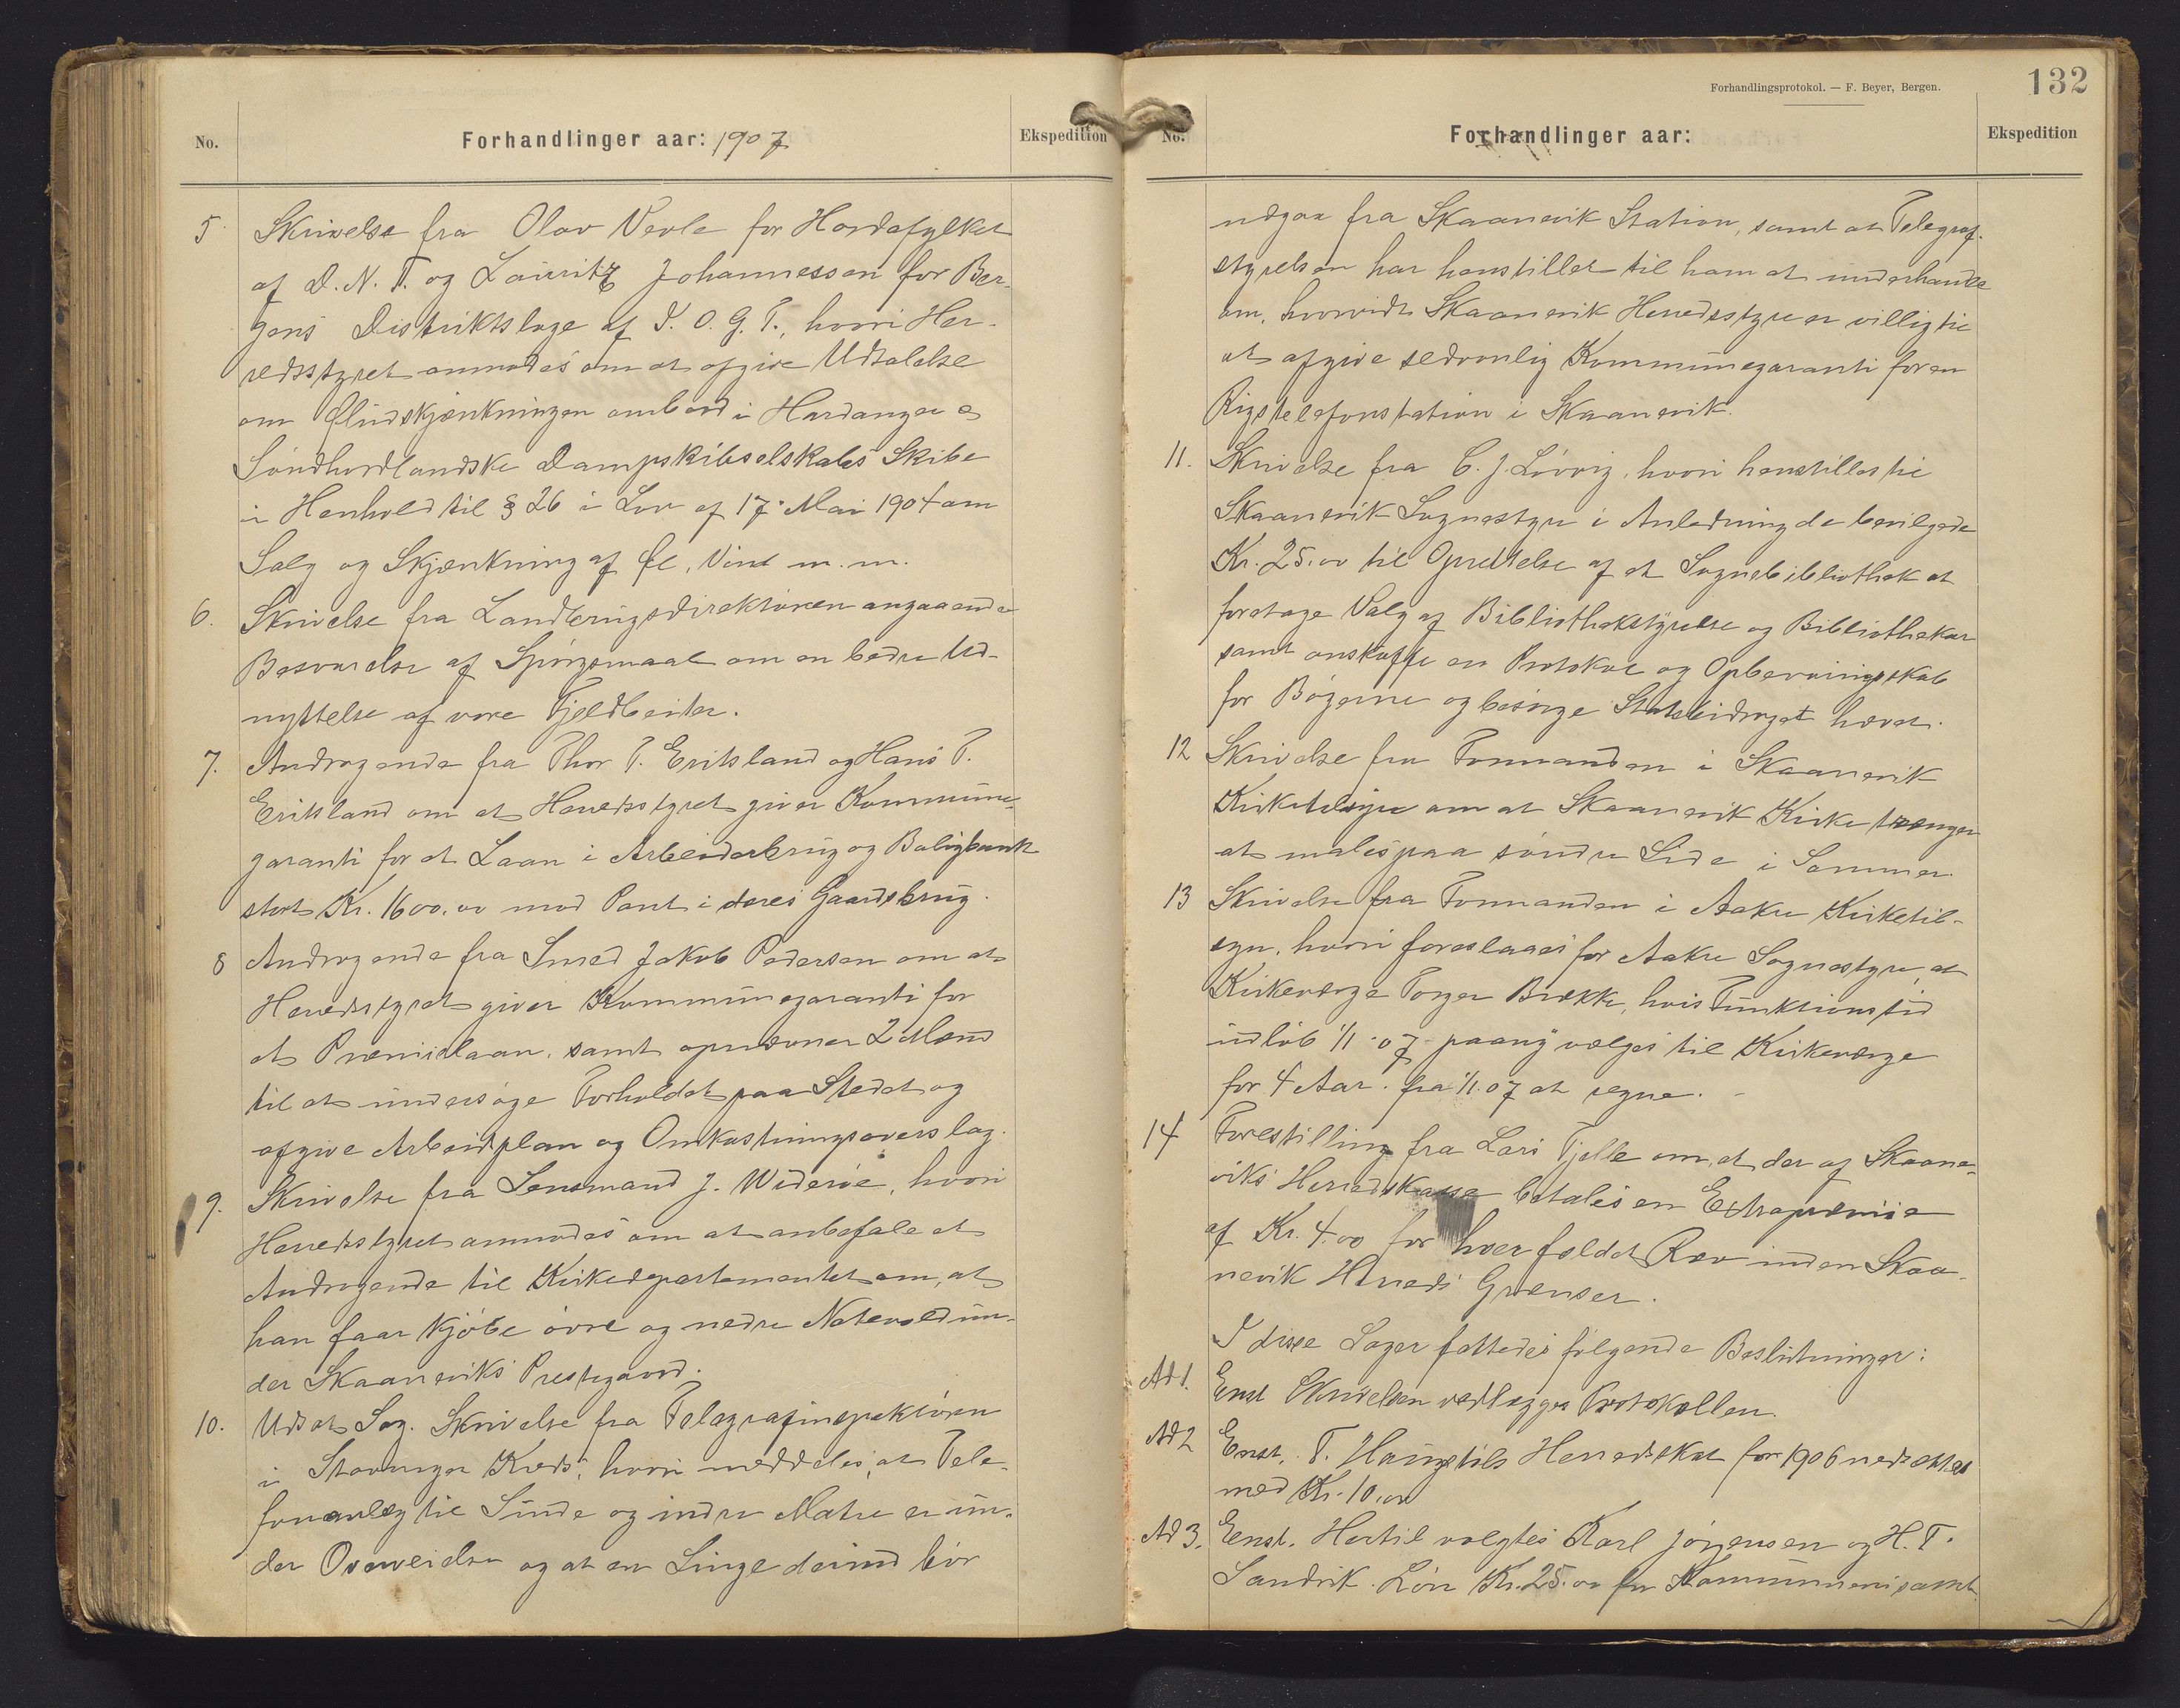 No.
Forhandlinger aar: 1907
Ekspedition
5. Skrivelse fra Olav Verle for Hordafylket
af D. N. T. og Lauritz Johannessen for Ber-
gens Distriktsloge af I. O. G. T., hvori Her-
redsstyret anmodes om at afgive Udtalelse
om Øludskjænkningen ombord i Hardanger og
Söndhordlandske Dampskibsselskabs Skibe
i Henhold til § 26 i Lov af 17. Mai 1904 om
Salg og Skjænkning af Øl, Vin m. m.
6. Skrivelse fra Landbrugsdirektören angaaende
Besvarelse af Spörgsmaal om en bedre Ud-
nyttelse af vore Fjeldbeiter.
7. Andragende fra Thor T. Eritsland og Hans T.
Eritsland om at Herredsstyret giver Kommune-
garanti for et Laan i Arbeiderbrug og Boligbank
stort Kr. 1600.00 mod Pant i deres Gaardsbrug.
8 Andragende fra Smed Jakob Pedersen om at
Herredsstyret giver Kommunegaranti for
et Præmielaan, samt opnævner 2 Mænd
til at undersöge Forholdet paa Stedet og
afgive Arbeidsplan og Omkostningsoverslag.
9. Skrivelse fra Lensmand J. Wideröe, hvori
Herredsstyret anmodes om at anbefale et
Andragende til Kirkedepartementet om, at
han faar kjöbe övre og nedre Notevold un-
der Skaaneviks Prestegaard.
10. Udsat Sag. Skrivelse fra Telegrafinspektören
i Stavanger Kreds, hvori meddeles, at Tele-
fonanlæg til Sunde og indre Matre er un-
der Overveielse og at en Linge derind bör
Forhandlingsprotokol. — F. Beyer, Bergen.
132
No.
Forhandlinger aar:
Ekspedition
udgaa fra Skaanevik Station, samt at Telegraf-
styrelsen har henstillet til ham at underhandle
om, hvorvidt Skaanevik Herredsstyre er villig til
at afgive sedvanlig Kommunegaranti for en
Rigstelefonstation i Skaanevik.
11. Skrivelse fra C. J. Lövvig, hvori henstilles til
Skaanevik Sognestyre i Anledning de bevilgede
Kr. 25.00 til Oprettelse af et Sognebibliothek at
foretage Valg af Bibliothekstyrelse og Bibliothekar
samt anskaffe en Protokol og Opbevaringsskab
for Bögerne og besörge Statsbidraget hævet.
12 Skrivelse fra Formanden i Skaanevik
Kirketilsyn om at Skaanevik Kirke trænger
at males paa söndre Side i Sommer.
13 Skrivelse fra Formanden i Aakre Kirketil-
syn, hvori foreslaaes for Aakre Sognestyre, at
Kirkeværge Torger Brække, hvis Funktionstid
udlöb 1/1 07 paany vælges til Kirkeværge
for 4 Aar. fra 1/1. 07 at regne.
14 Forestilling fra Lars Fjelle om, at der af Skaane-
viks Herredskasse betales en Extrapræmie
af Kr. 4.00 for hver fældet Ræv inden Skaa-
nevik Herreds Grænser.
I disse Sager fattedes fölgende Beslutninger:
Ad 1. Enst Skrivelsen vedlægges Protokollen.
Ad 2 Enst. T. Haugstils Herredsskat for 1906 nedsættes
med Kr. 10.00
Ad 3. Enst. Hertil valgtes Karl Jörgensen og H. T.
Sandvik. Lön Kr. 25.00 for Kommunens samt